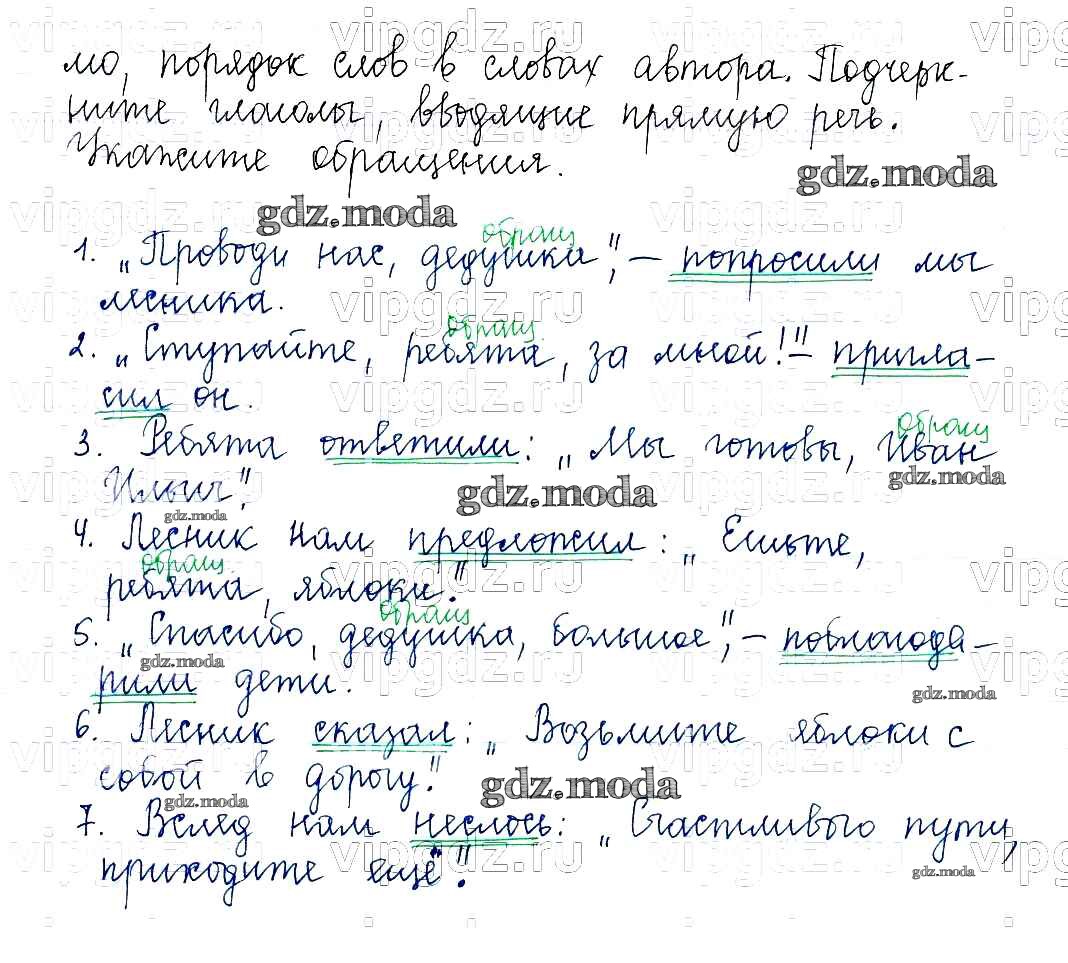 мо, порядок слов в словах автора. Подчерк-
ните глаголы, вводящие прямую речь.
Укажите обращения.
gdz.moda
gdz.moda
обращ
1. „Проводи нас, дедушка", — попросили мы
лесника.
обращ
2. „Ступайте, ребята, за мной!" — пригла-
сил он.
обращ
3. Ребята ответили: „Мы готовы, Иван
Ильич".
gdz.moda
gdz.moda
gdz.moda
4. Лесник нам предложил: „Ешьте,
обращ
ребята, яблоки".
обращ
5. „Спасибо, дедушка, большое", — поблагода-
рили дети.
gdz.moda
gdz.moda
6. Лесник сказал: „Возьмите яблоки с
собой в дорогу".
gdz.moda
gdz.moda
7. Вслед нам неслось: „Счастливого пути,
приходите ещё".
gdz.moda
vipgdz.ru